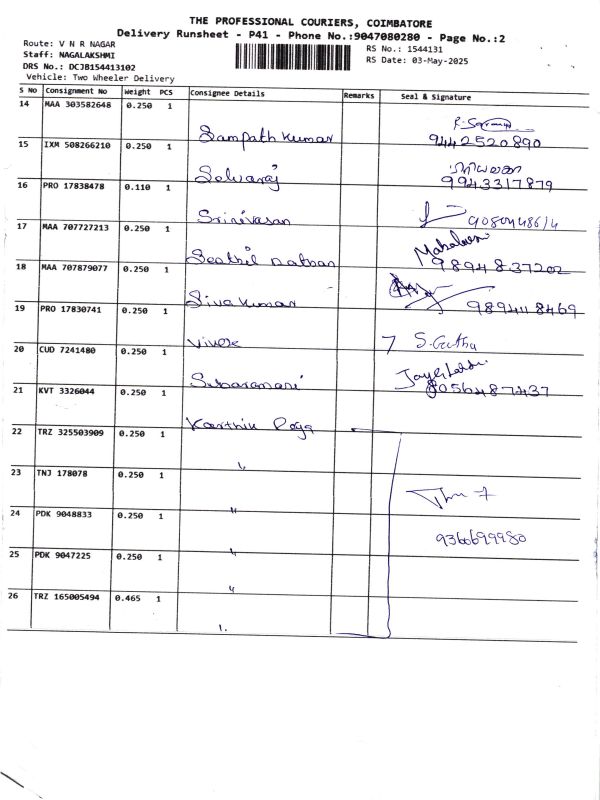 THE PROFESSIONAL COURIERS, COIMBATORE
Delivery Runsheet - P41 - Phone No.:9047080280 - Page No.:2
Route: V N R NAGAR
RS No.: 1544131
Staff: NAGALAKSHMI
RS Date: 03-May-2025
DRS No.: DCJB154413102
Vehicle: Two Wheeler Delivery
S No Consignment No Weight PCS Consignee Details Remarks Seal & Signature
14 MAA 303582648 0.250 1
Sampath Kumar 9442520890
15 IXM 508266210 0.250 1
Selvaraj 9943317879
16 PRO 17838478 0.110 1
Srinivasan
17 MAA 707727213 0.250 1
Senthil nathan 9894837202
18 MAA 707879077 0.250 1
Siva Kumar 9894118469
19 PRO 17830741 0.250 1
Vivek S. Geetha
20 CUD 7241480 0.250 1
8056487437
21 KVT 3326044 0.250 1
Karthik
22 TRZ 325503909 0.250 1
"
23 TNJ 178078 0.250 1
"
24 PDK 9048833 0.250 1
" 9360699980
25 PDK 9047225 0.250 1
"
26 TRZ 165005494 0.465 1
"